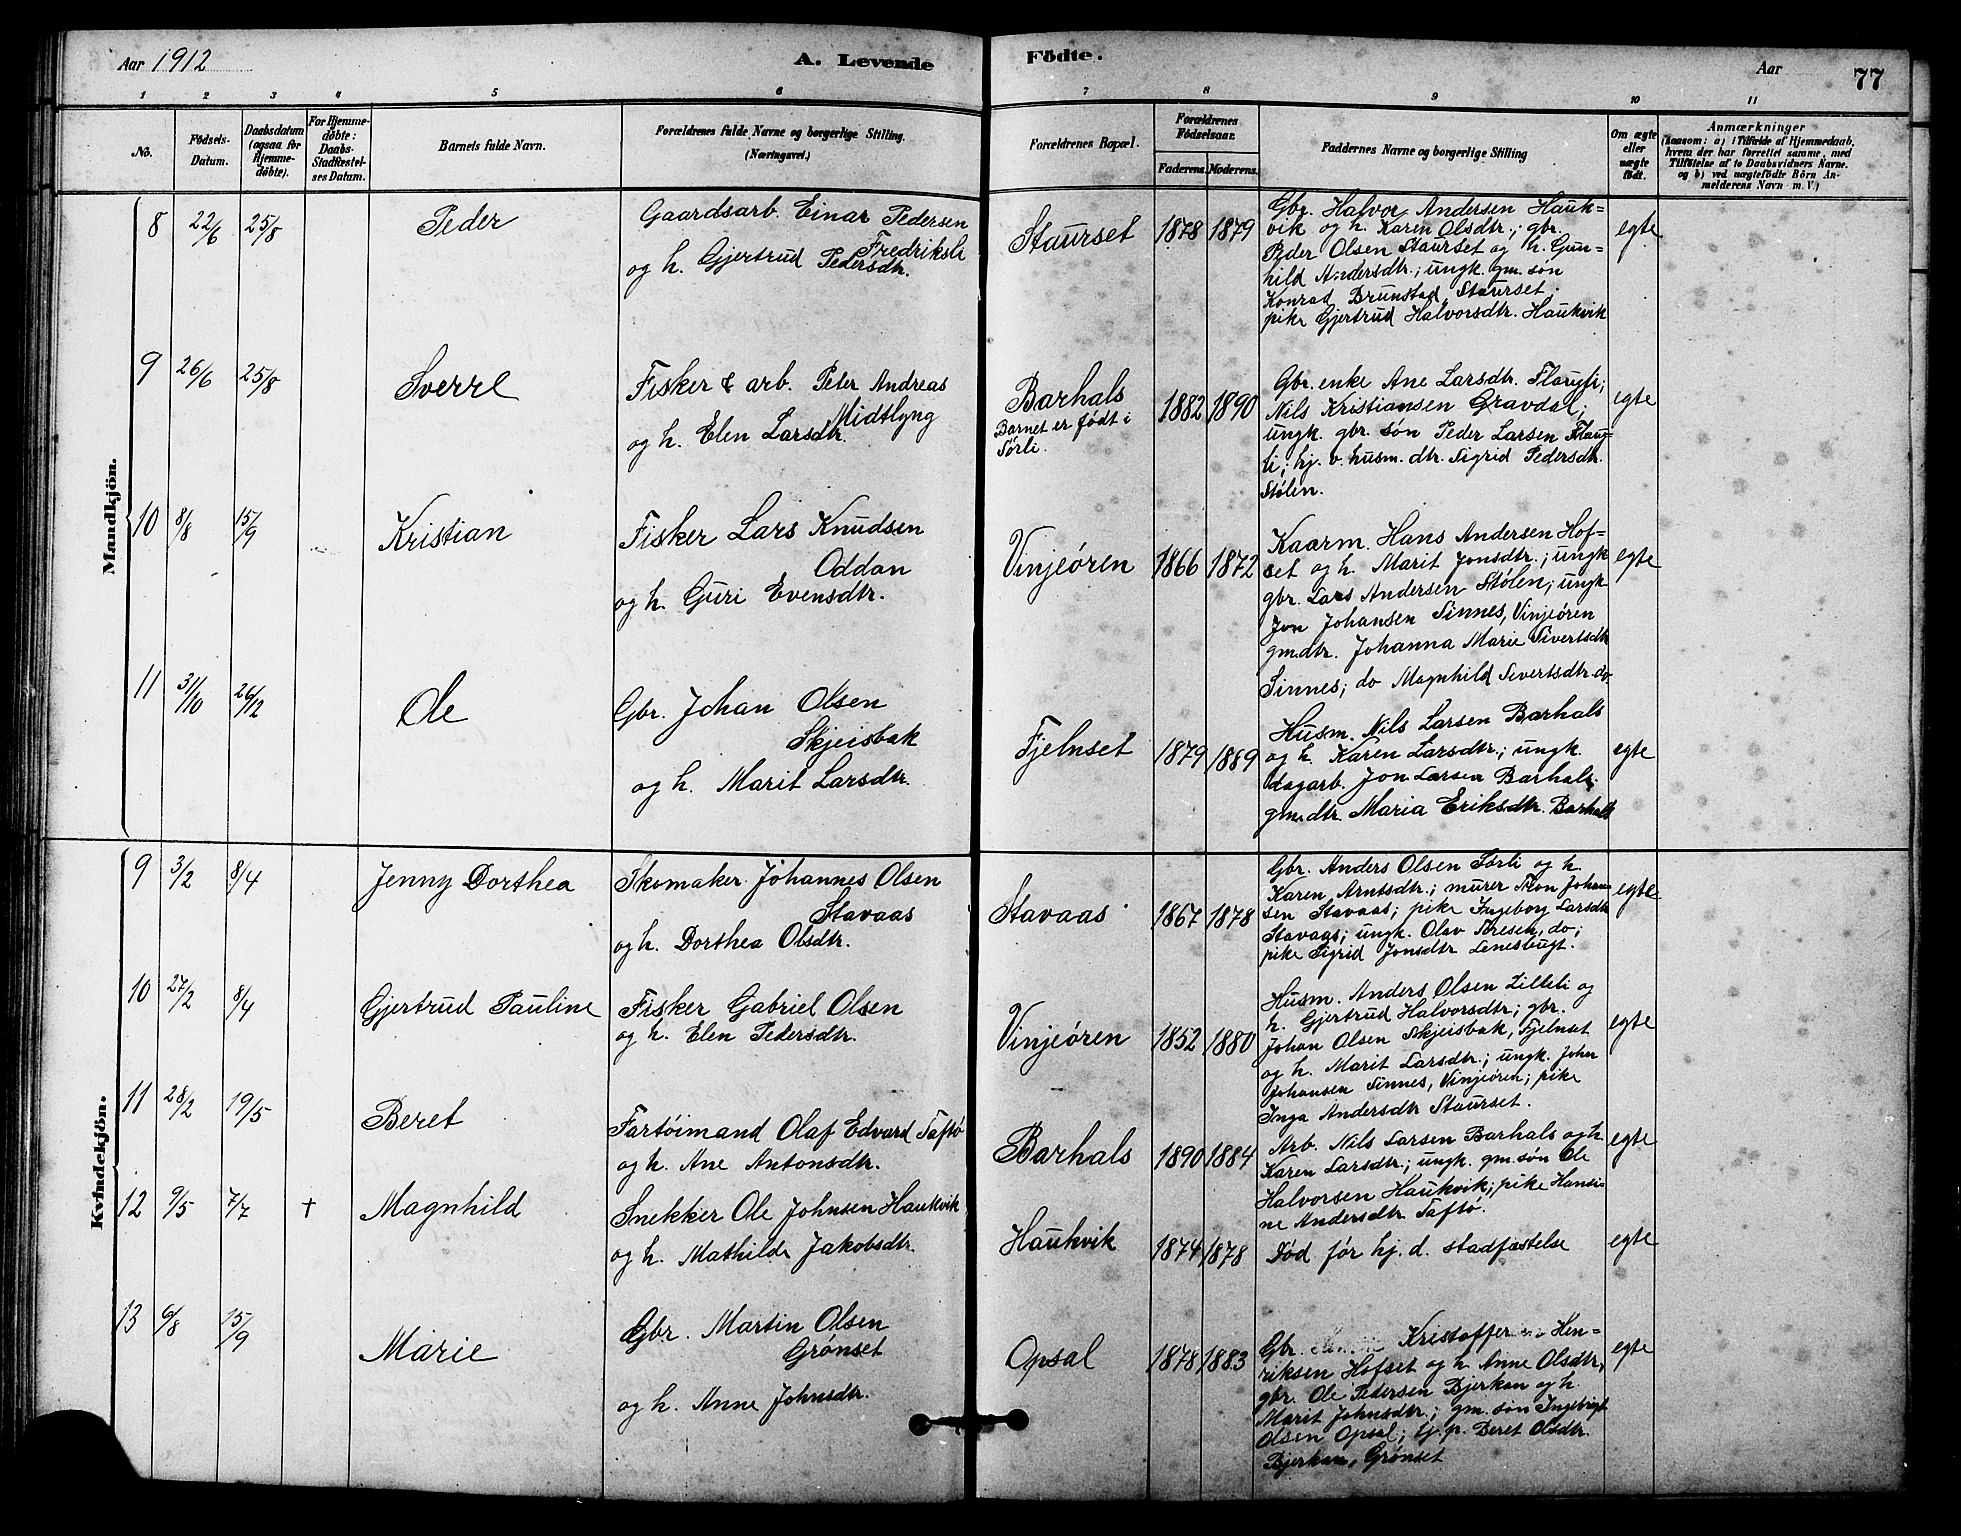 Aar 1912
A. Levende
Födte.
Aar
77
1 2 3 4 5 6 7 8 9 10 11
No.
Fødsels-
Datum.
Daabsdatum
(ogsaa for
Hjemme-
døbte).
For Hjemme-
døbte:
Daabs-
Stadfæstel-
ses Datum.
Barnets fulde Navn.
Forældrenes fulde Navne og borgerlige Stilling.
(Næringsvei.)
Forældrenes Bopæl.
Forældrenes
Fødselsaar.
Faderens. Moderens.
Faddernes Navne og borgerlige Stilling
Om ægte
eller
uægte
født.
Anmærkninger
(saasom: a) i Tilfælde af Hjemmedaab,
hvem der har forrettet samme, med
Tilføielse af to Daabsvidners Navne.
og b) ved uægtefødte Børn An-
melderens Navn m. V.)
Mandkjön.
8 22/6 25/8 Peder
Gaardsarb. Einar Pedersen
Fredriksli
og h. Gjertrud Pedersdtr.
Staurset 1878 1879
Gbr. Halvor Andersen Hauk=
vik og h. Karen Olsdtr.; gbr.
Peder Olsen Staurset og h. Gun-
hild Andersdtr.; ungk. gm. søn
Konrad Brunstad, Staurset.
pike Gjertrud Halvorsdtr. Haukvik
egte
9 26/6 25/8 Sverre
Fisker & arb. Peter Andreas
Midtlyng
og h. Elen Larsdtr.
Barhals
Barnet er født i
Sørli.
1882 1890
Gbr. enke Ane Larsdtr. Flaugli;
Nils Kristiansen Gravdal;
ungk. gbr. søn Peder Larsen Flaug-
li; hj. v. husm. dtr. Sigrid Pedersdtr.
Stølen.
egte
10 8/8 15/9 Kristian
Fisker Lars Knudsen
Oddan
og h. Guri Evensdtr.
Vinjeøren 1866 1872
Kaarm. Hans Andersen Hof=
set og h. Marit Jonsdtr.; ungk
gbr. Lars Andersen Stølen; ungk
Jon Johansen Sinnes, Vinjeøren
gm.dtr. Johanna Marie Sivertsdtr
Sinnes; do Magnhild Sivertsdtr. do
egte
11 31/10 26/12 Ole
Gbr. Johan Olsen
Skjeisbak
og h. Marit Larsdtr.
Fjelnset 1879 1889
Husm. Nils Larsen Barhals
og h. Karen Larsdtr.; ungk.
dagarb. Jon Larsen Barhals;
gm.dtr. Maria Eriksdtr. Barhals
egte
Kvindekjön.
9 3/2 8/4 Jenny Dorthea
Skomaker Johannes Olsen
Stavaas
og h. Dorthea Olsdtr.
Stavaas 1867 1878
Gbr. Anders Olsen Sørli og h.
Karen Arntsdtr.; murer Tron Johan-
sen Stavaas; pike Ingeborg Larsdtr
Stavaas; ungk. Olav Tresen, do;
pike Sigrid Jonsdtr Lenesbugt.
egte
10 27/2 8/4 Gjertrud Pauline
Fisker Gabriel Olsen
og h. Elen Pedersdtr.
Vinjeøren 1852 1880
Husm. Anders Olsen Lilleli og
h. Gjertrud Halvorsdtr; gbr.
Johan Olsen Skjeisbak, Fjelnset
og h. Marit Larsdtr.; ungk. John
Johansen Sinnes, Vinjeøren; pike
Inga Andersdtr Staurset.
egte
11 28/2 19/5 Beret
Fartøimand Olaf Edvard Taftø
og h. Ane Antonsdtr.
Barhals 1890 1884
Arb. Nils Larsen Barhals og h
Karen Larsdtr.; ungk. gm. søn Ole
Halvorsen Haukvik; pike Hansi-
ne Andersdtr Taftø.
egte
12 9/5 7/7 + Magnhild
Snekker Ole Johnsen Haukvik
og h. Mathilde Jakobsdtr.
Haukvik 1874 1878
Død før hj. d. stadfæstelse
egte
13 6/8 15/9 Marie
Gbr. Martin Olsen
Grønset
og h. Anne Johnsdtr.
Opsal 1878 1883
Gbr. Kristoffer Hen=
riksen Hofset og h. Anne Olsdtr,
gbr. Ole Pedersen Bjerkan og h.
Marit Johnsdtr.; gm. søn Ingebrigt
Olsen Opsal; tj. p. Beret Olsdtr.
Bjerkan, Grønset
egte